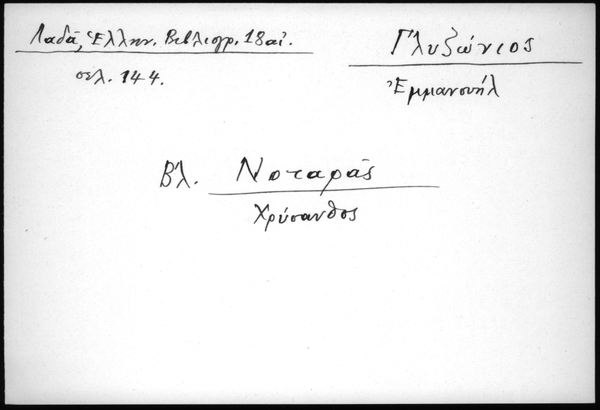 Λαδᾶ, Ἑλλην. Βιβλιογρ. 18 αἰ.
σελ. 144.
Γλυζώνιος
Ἐμμανουήλ
Βλ. Νοταρᾶς
Χρύσανθος